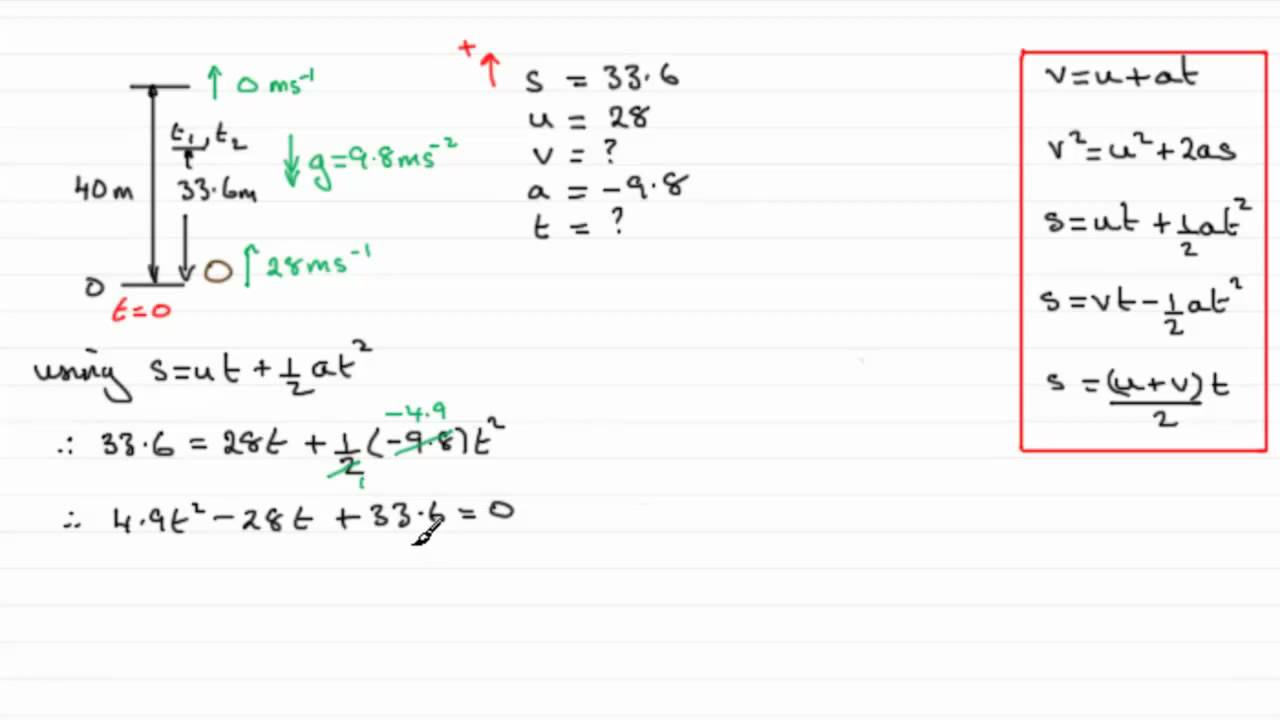 0 ms⁻¹
t₁, t₂
g=9.8ms⁻²
40m
33.6m
28ms⁻¹
0
t=0
+
s = 33.6
u = 28
v = ?
a = -9.8
t = ?
v=u+at
v²=u²+2as
s=ut+½at²
s=vt-½at²
s=(u+v)t/2
using s=ut+½at²
-4.9
∴ 33.6 = 28t + ½(-9.8)t²
1
∴ 4.9t² - 28t + 33.6 = 0